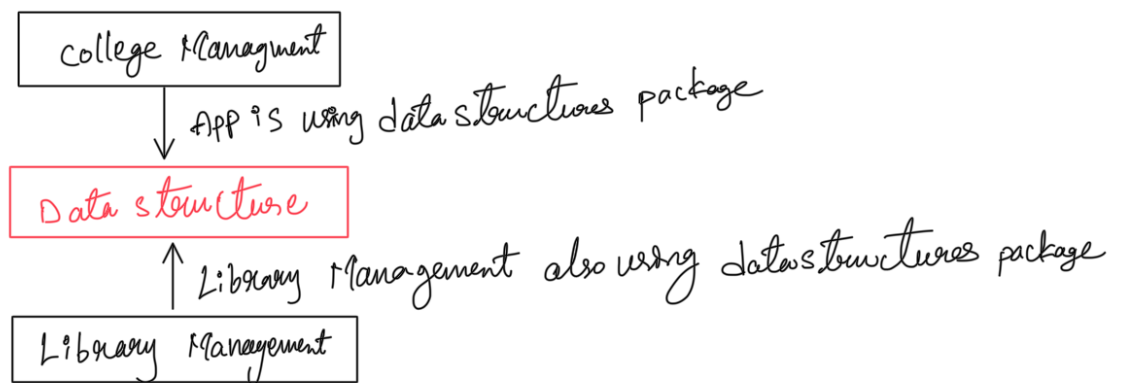 College Managment
App is using data structures package
Data structure
Library Management also using datastructures package
Library Management